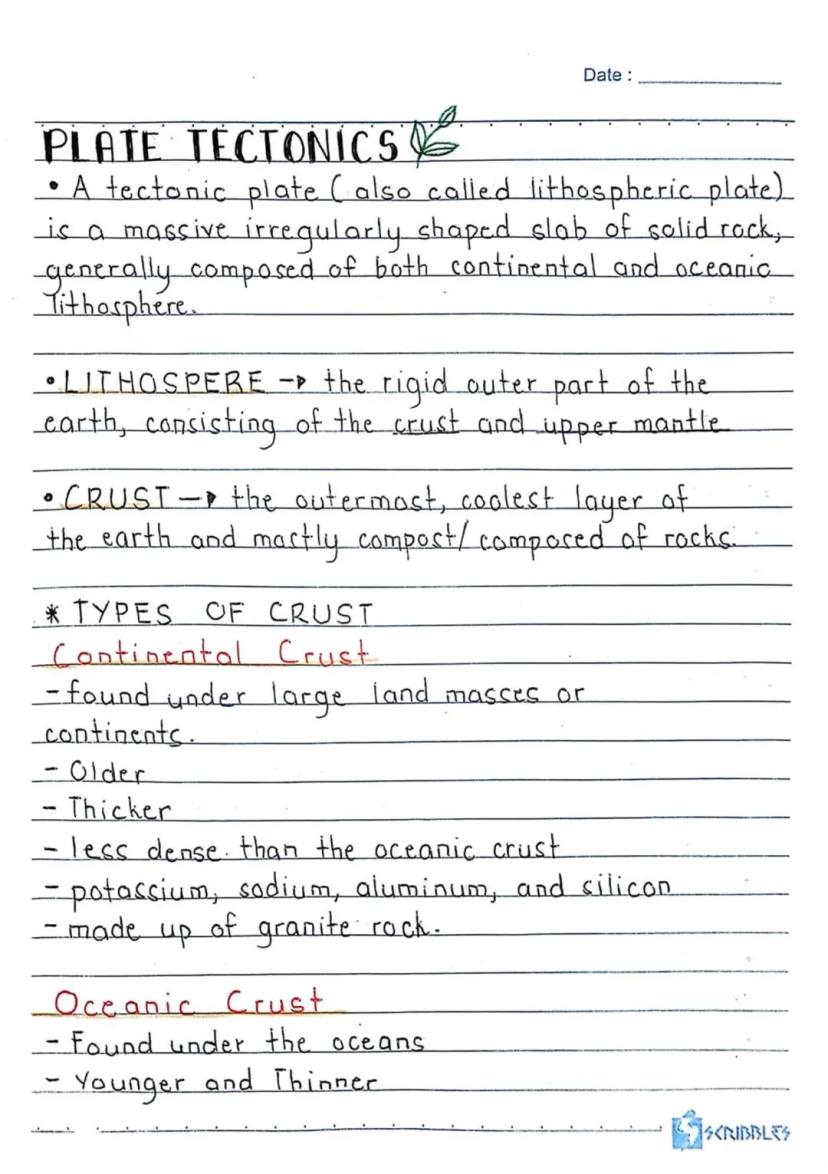 Date :
PLATE TECTONICS
• A tectonic plate (also called lithospheric plate)
is a massive irregularly shaped slab of solid rock,
generally composed of both continental and oceanic
lithosphere.
• LITHOSPERE → the rigid outer part of the
earth, consisting of the crust and upper mantle
• CRUST → the outermost, coolest layer of
the earth and mostly compost/composed of rocks.
* TYPES OF CRUST
Continental Crust
- found under large land masses or
continents.
- Older
- Thicker
- less dense than the oceanic crust
- potassium, sodium, aluminum, and silicon
- made up of granite rock.
Oceanic Crust
- Found under the oceans
- Younger and Thinner
SCRIBBLES